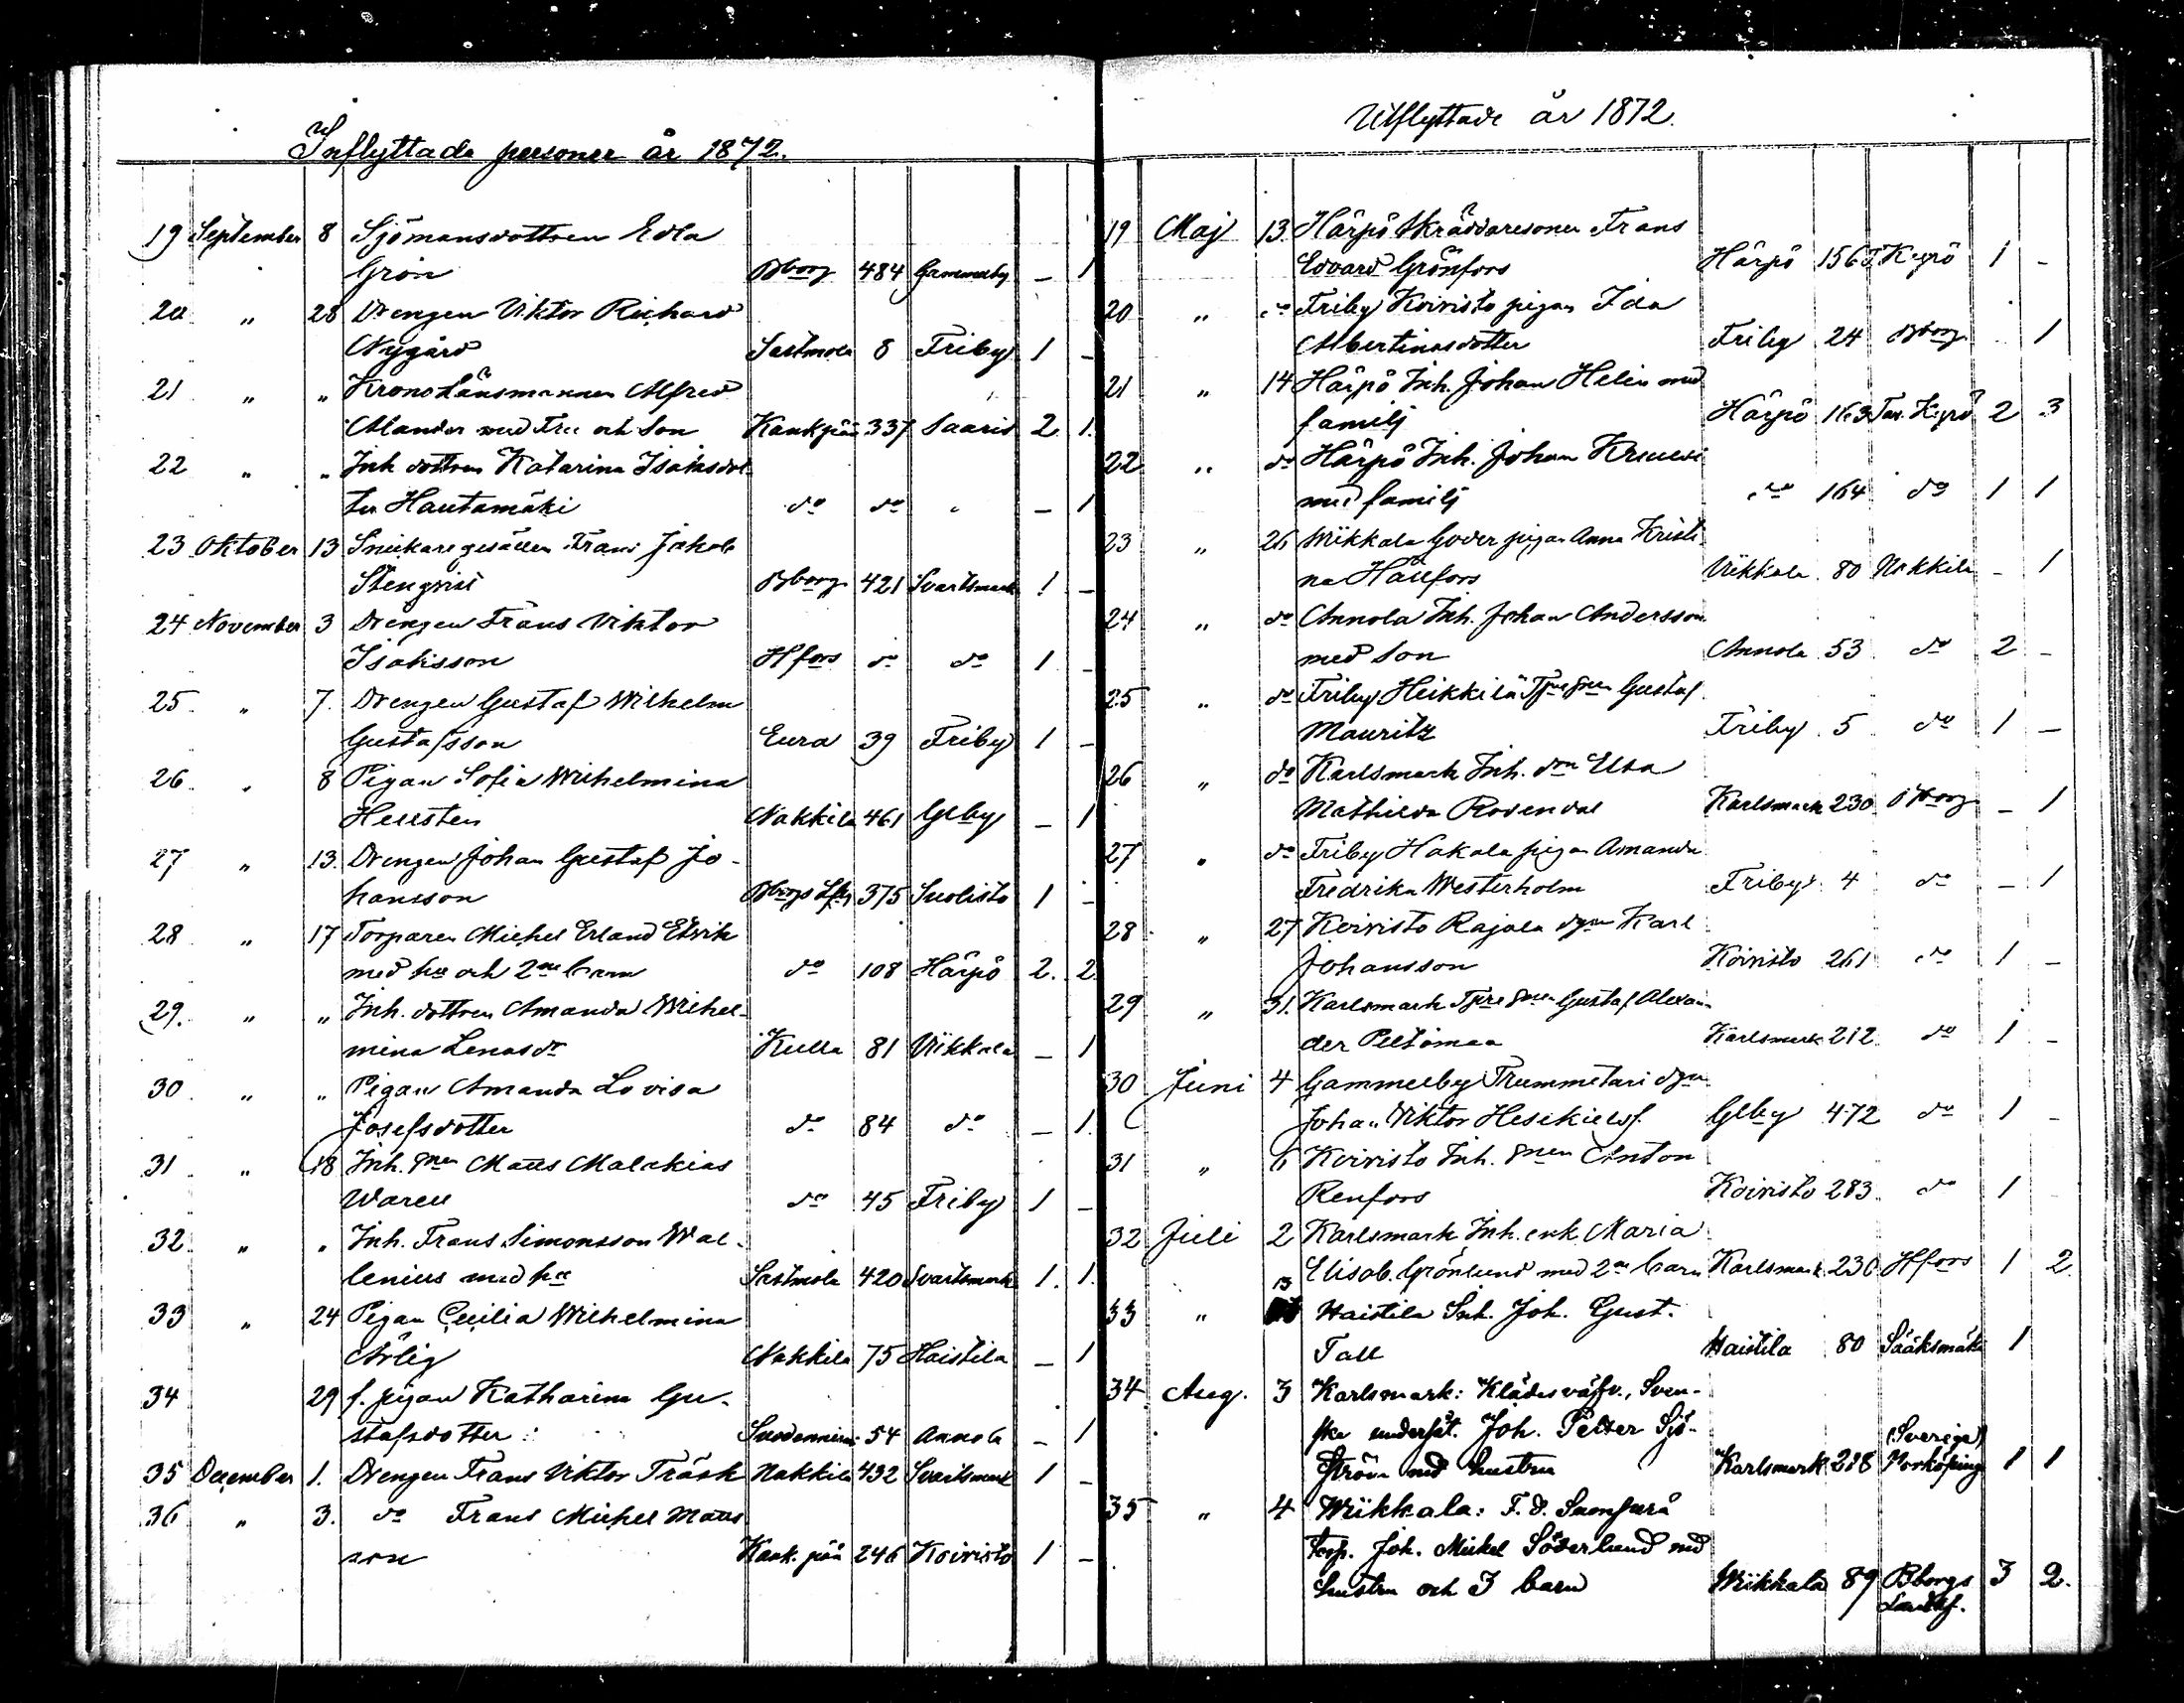 Inflyttade personer år 1872.
19 September 8 Sjömansdottren Edla
Grön Bborg 484 Gammelby – 1
20 " 28 Drengen Viktor Richard
Nygård Sastmola 8 Friby 1 –
21 " " Kronolänsmannen Alfred
Alander med Fru och Son Kankpää 337 Saaris 2 1.
22 " " Inh dottren Katarina Isaksdot
ter Hautamäki do do " – 1
23 Oktober 13 Snickaregesällen Frans Jakob
Stenqvist Bborg 421 Svartsmark 1 –
24 November 3 Drengen Frans Viktor
Isaksson Hfors do do 1 –
25 " 7. Drengen Gustaf Wilhelm
Gustafsson Eura 39 Friby 1 –
26 " 8 Pigan Sofia Wilhelmina
Hellsten Nakkila 461 Glby – 1
27 " 13. Drengen Johan Gustaf Jo-
hansson Bborgs Lfs 375 Suolisto 1 –
28 " 17 Torparen Michel Erland
med hu och 2ne barn do 108 Härpö 2. 2
29. " " Inh. dottren Amanda Wilhel-
mina Lenasdr Kulla 81 Viikkala – 1
30 " " Pigan Amanda Lovisa
Josefsdotter do 84 do – 1.
31 " 18 Inh. snen Matts Malakias
Warell do 45 Friby 1 –
32 " " Inh. Frans Simonsson Wal-
lenius med hu Sastmola 420 Svartsmark 1. 1.
33 " 24 Pigan Cecilia Wilhelmina
Ärlig Nakkila 75 Haistila – 1
34 29 f. pigan Katharina Gu-
stafsdotter Suodenniemi 54 Annola – 1
35 December 1. Drengen Frans Viktor Träsk Nakkila 432 Svartsmark 1 –
36 " 3. do Frans Michel Matts
son Kankpää 246 Koivisto 1 –
Utflyttade år 1872.
19 Maj 13. Härpö Skräddaresonen Frans
Edvard Grönfors Härpö 156 T Kyrö 1 –
20 " do Friby Koivisto pigan Ida
Albertinasdotter Friby 24 Bborg 1
21 " 14 Härpö Inh. Johan Helin med
familj Härpö 163 Tav. Kyrö 2 3
22 " do Härpö Inh. Johan
med familj do 164 do 1 1
23 " 26 Wiikkala Goder pigan Anna Kristi
na Hällfors Viikkala 80 Nakkila – 1
24 " do Annola Inh. Johan Andersson
med Son Annola 53 do 2 –
25 " do Friby Heikkilä Tpre snen Gustaf
Mauritz Friby 5 do 1 –
26 " do Karlsmark Inh. drn Elsa
Mathilda Rosendal Karlsmark 230 Bborg – 1
27 " do Friby Hakala pigan Amanda
Fredrika Westerholm Friby 4 do – 1
28 " 27 Koivisto Rajala dgn Karl
Johansson Koivisto 261 do 1 –
29 " 31. Karlsmark Tpre snen Gustaf Alexan
der Peltomaa Karlsmark 212 do 1 –
30 Juni 4 Gammelby Trummetari dgn
Johan Viktor Hesekielsf. Glby 472 do 1 –
31 " 6 Koivisto Inh. snen Anton
Renfors Koivisto 283 do 1
32 Juli 2 Karlsmark Inh. enk Maria
Elisab. Grönlund med 2ne barn Karlsmark 230 Hfors 1 2.
33 " 13 Haistila Inh. Joh. Gust.
Tall Haistila 80 Sääksmäki 1
34 Aug. 3 Karlsmark: Klädesväfv., Sven-
ske undersåt. Joh. Petter Sjö-
ström med hustru Karlsmark 218 (Sverige) Norköping 1 1
35 " 4 Wiikkala: F. d. Sunfurå
torp. Joh. Mickel Söderlund med
hustru och 3 barn Wiikkala 89 Bborgs Landsf. 3 2.